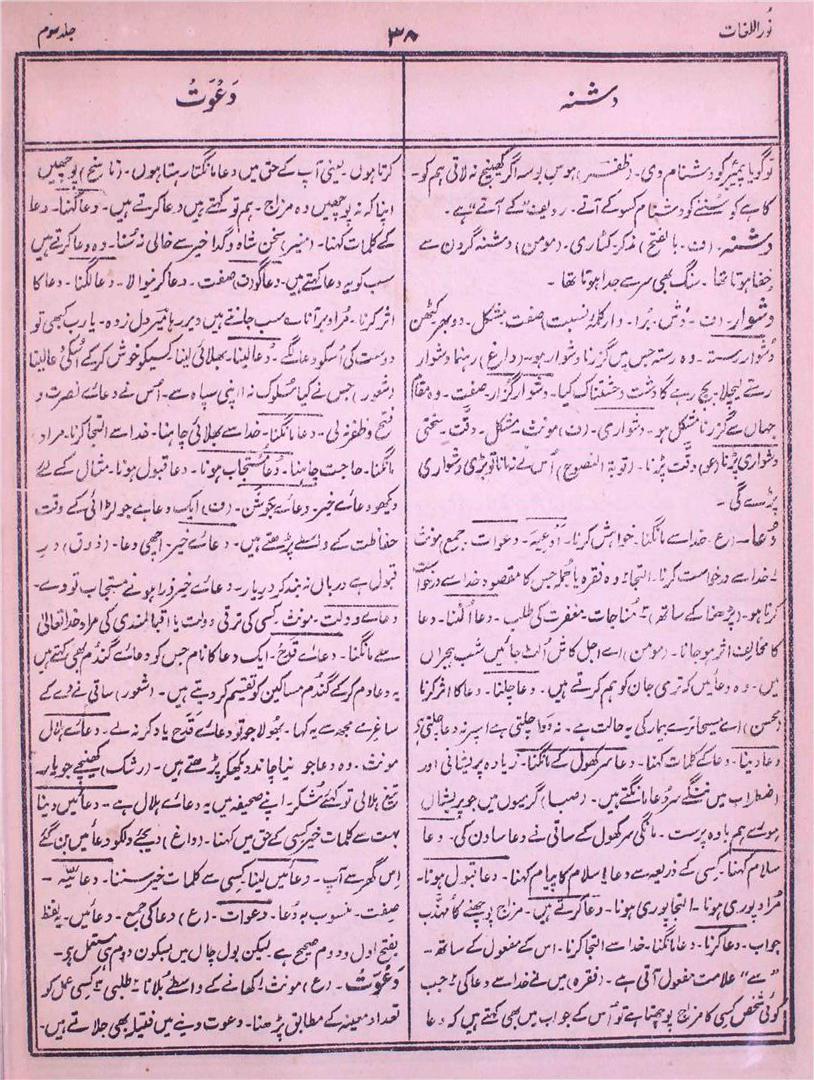 نُور اللغات
۳۸
جلد سوم
دشنہ
دَعْوَتْ
تو گویا پیمبر کو دشنام دی۔ (ظفر) ہوس بوسہ اگر کھینچ نہ لاتی ہم کو۔
کاہے کو سُننے کو دشنام کسو کے آتے۔ ردیف "کے آتے" ہے۔
دشنہ۔ (ف۔ بالفتح) مذکر۔ کٹاری۔ (مومن) دشنہ گردن سے
خفا ہوتا تھا۔ سنگ بھی سر سے جدا ہوتا تھا۔
دشوار۔ (ف۔ دُش۔ بُرا۔ وار کلمۂ نسبت) صفت۔ مشکل۔ دوبھر۔ کٹھن
دُشوار رستہ۔ وہ رستہ جس میں گزرنا دشوار ہو۔ (داغ) رہنما دشوار
رستے لیجلا۔ بچ رہے گا دشت وحشتناک کیا۔ دشوار گزار۔ صفت۔ وہ مقام
جہاں سے گزرنا مشکل ہو۔ دشواری۔ (ف) مونث۔ مشکل۔ دقّت۔ سختی
دشواری پڑنا (عو) دقّت پڑنا۔ (توبۃ النصوح) اُس نے نہ مانا تو بڑی دشواری
پڑے گی۔
دُعا۔ (ع۔ خدا سے مانگنا۔ خواہش کرنا۔ اَدعِیَہ۔ دعوات۔ جمع) مونث
۱۔ خدا سے درخواست کرنا۔ التجا۔ وہ فقرہ یا جملہ جس کا مقصود خدا سے درخواست
کرنا ہو۔ (پڑھنا کے ساتھ) ۲۔ مُناجات۔ مغفرت کی طلب۔ دعا اُلٹنا۔ دعا
کا مخالف اثر ہو جانا۔ (مومن) اے اجل کاش اُلٹ جائیں شب ہجراں
میں۔ وہ دعائیں کہ تری جان کو ہم کرتے ہیں۔ دعا چلنا۔ دعا کا اثر کرنا
(محسن) اے مسیحا ترے بیمار کی یہ حالت ہے۔ نہ دوا چلتی ہے اسپر نہ دعا چلتی ہے
دعا دینا۔ دعا کے کلمات کہنا۔ دعا سر کھول کے مانگنا۔ زیادہ پریشانی اور
اضطراب میں ننگے سر دُعا مانگتے ہیں۔ (صبا) گرمیوں میں جو پریشاں
ہوئے ہم بادہ پرست۔ مانگی سر کھول کے ساقی نے دعا ساون کی۔ دعا
سلام کہنا۔ کِسی کے ذریعہ سے دعا یا سلام کا پیام کہنا۔ دعا قبول ہونا۔
مُراد پوری ہونا۔ التجا پوری ہونا۔ دعا کرتے ہیں۔ مزاج پوچھنے کا مہذّب
جواب۔ دعا کرنا۔ دعا مانگنا۔ خدا سے التجا کرنا۔ اس کے مفعول کے ساتھ۔
"سے" علامت مفعول آتی ہے۔ (فقرہ) میں نے خدا سے دعا کی ۲۔ جب
کوئی شخص کسی کا مزاج پوچھتا ہے تو اُس کے جواب میں بھی کہتے ہیں کہ دعا
کرتا ہوں۔ یعنی آپ کے حق میں دعا مانگتا رہتا ہوں۔ (ناسخ) پوچھیں
اپنا کہ نہ پوچھیں وہ مزاج۔ ہم تو کہتے ہیں دعا کرتے ہیں۔ دعا کہنا۔ دعا
کے کلمات کہنا۔ (منیر) سخن شاہ و گدا خیر سے خالی نہ سُنا۔ وہ دعا کرتے ہیں
سب کو یہ دعا کہتے ہیں۔ دعا گو (ف) صفت۔ دعا کرنیوالا۔ دعا لگنا۔ دعا کا
اثر کرنا۔ مُراد بر آنا۔ سب جانتے ہیں دیر رہا میر دل زدہ۔ یارب کبھی تو
دوست کی اُسکو دعا لگے۔ دُعا لینا۔ بھلائی لینا۔ کسیکو خوش کر کے اُسکی دُعا لینا
(شعور) جس نے کیا سُلوک نہ اپنی سپاہ سے۔ اُس نے دعائے نصرت و
فتح و ظفر نہ لی۔ دعا مانگنا۔ خدا سے بھلائی چاہنا۔ خدا سے التجا کرنا۔ مراد
مانگنا۔ حاجت چاہنا۔ دعا مُستجاب ہونا۔ دعا قبول ہونا۔ مثال کے لئے
دیکھو دعائے خیر۔ دعائے جوشن۔ (ف) ایک دعا ہے جو لڑائی کے وقت
حفاظت کے واسطے پڑھتے ہیں۔ دعائے خیر۔ اچھی دعا۔ (ذوق) درِ
قبول ہے درباں نہ بند کر درِ یار۔ دعائے خیر ذرا ہونے مستجاب تو دے۔
دعائے دولت۔ مونث۔ کسی کی ترقی دولت یا اقبالمندی کی مراد خدا تعالیٰ
سے مانگنا۔ دعائے قدح۔ ایک دعا کا نام جس کو دعائے گندم بھی کہتے ہیں
یہ دعا دم کر کے گندم مساکین کو تقسیم کر دیتے ہیں۔ (شعور) ساقی نے دے کے
ساغرِ مے مجھ سے یہ کہا۔ بھُولا جو تو دعائے قدح یاد کر نہ لے۔ دعائے ہلال
مونث۔ وہ دعا جو نیا چاند دیکھکر پڑھتے ہیں۔ (رشک) کھینچے جو یار
تیغ ہلالی تو کہئے شُکر۔ اپنے صحیفہ میں یہ دعائے ہلال ہے۔ دعائیں دینا
بہت سے کلمات خیر کسی کے حق میں کہنا۔ (داغ) دیجئے دلکو دعائیں بن گئے
اِس گھر سے آپ۔ دعائیں لینا۔ کِسی سے کلمات خیر سننا۔ دعائیہ۔
صفت۔ منسوب بہ دُعا۔ دعوات۔ (ع) دعا کی جمع۔ دعائیں۔ یہ لفظ
بفتح اول و دوم صحیح ہے لیکن بول چال میں بسکون دوم ہی مستعمل ہے۔
دَعْوَتْ۔ (ع) مونث ۱۔ کھانے کے واسطے بُلانا ۲۔ طلبی ۳۔ کسی عمل کو
تعداد معینہ کے مطابق پڑھنا۔ دعوت دینے میں فتیلہ بھی جلاتے ہیں۔